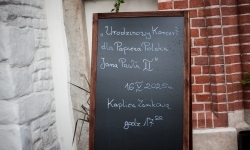 „Urodzinowy Koncert
dla Papieża Polaka
Jana Pawła II”
Kaplica Zamkowa
godz 17⁰⁰